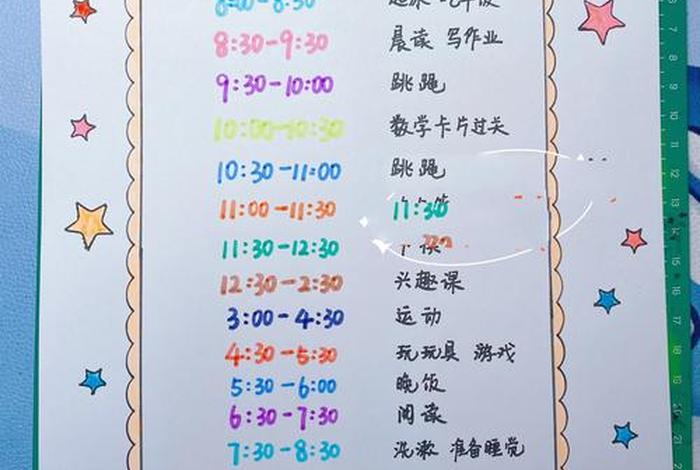 8:00-8:30 起床 吃早饭
8:30-9:30 晨读 写作业
9:30-10:00 跳绳
10:00-10:30 数学卡片过关
10:30-11:00 跳绳
11:00-11:30 11:30
11:30-12:30
12:30-2:30 兴趣课
3:00-4:30 运动
4:30-5:30 玩玩具 游戏
5:30-6:00 晚饭
6:30-7:30 阅读
7:30-8:30 洗漱 准备睡觉